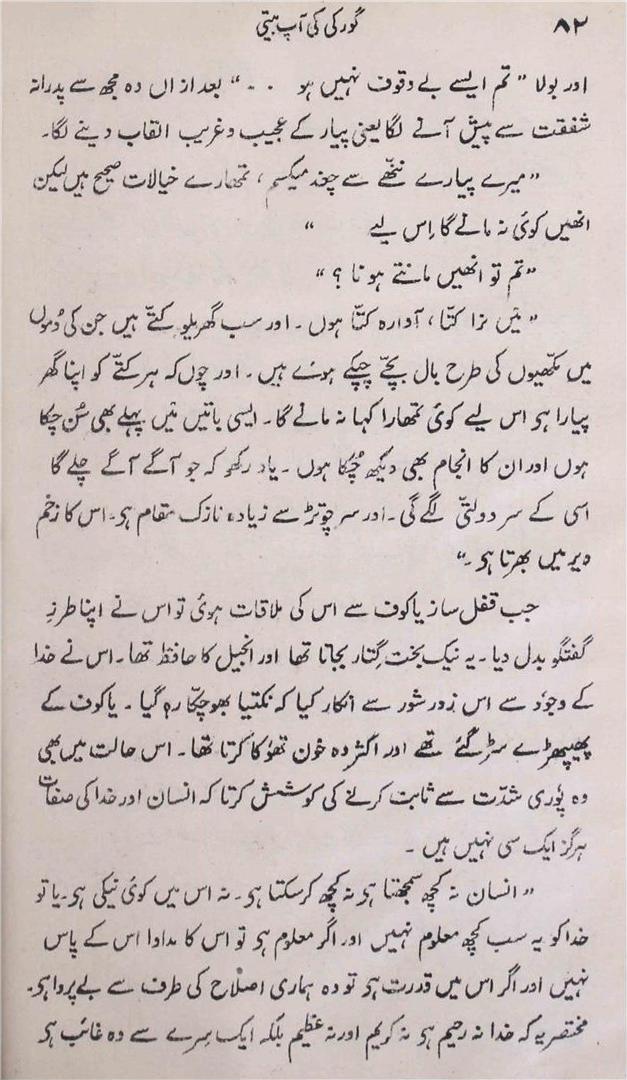 ۸۲ گورکی کی آپ بیتی
اور بولا ”تم ایسے بے وقوف نہیں ہو ۔ ۔ ۔“ بعد ازاں وہ مجھ سے پدرانہ
شفقت سے پیش آنے لگا یعنی پیار کے عجیب و غریب القاب دینے لگا۔
”میرے پیارے ننھے سے چغد میکسم، تمھارے خیالات صحیح ہیں لیکن
انھیں کوئی نہ مانے گا اِس لیے “
”تم تو انھیں مانتے ہو نا؟“
”میں نرا کتّا، آوارہ کتّا ہوں۔ اور سب گھریلو کتّے ہیں جن کی دُموں
میں مکھّیوں کی طرح بال بچّے چپکے ہوئے ہیں۔ اور چوں کہ ہر کتّے کو اپنا گھر
پیارا ہو اس لیے کوئی تمھارا کہا نہ مانے گا۔ ایسی باتیں میں پہلے بھی سُن چکا
ہوں اور ان کا انجام بھی دیکھ چُکا ہوں۔ یاد رکھو کہ جو آگے آگے چلے گا
اسی کے سر دولتّی لگے گی۔ اور سر چوتڑ سے زیادہ نازک مقام ہو۔ اس کا زخم
دیر میں بھرتا ہو۔“
جب قفل ساز یاکوف سے اس کی ملاقات ہوئی تو اس نے اپنا طرزِ
گفتگو بدل دیا۔ یہ نیک بخت گِتار بجاتا تھا اور انجیل کا حافظ تھا۔ اس نے خدا
کے وجود سے اس زور شور سے انکار کیا کہ نکتیا بھوچکّا رہ گیا۔ یاکوف کے
پھیپھڑے سڑ گئے تھے اور اکثر وہ خون تھوکا کرتا تھا۔ اس حالت میں بھی
وہ پوری شدّت سے ثابت کرنے کی کوشش کرتا کہ انسان اور خدا کی صفات
ہرگز ایک سی نہیں ہیں۔
”انسان نہ کچھ سمجھتا ہو نہ کچھ کرسکتا ہو۔ نہ اس میں کوئی نیکی ہو۔ یا تو
خدا کو یہ سب کچھ معلوم نہیں اور اگر معلوم ہو تو اس کا مداوا اس کے پاس
نہیں اور اگر اس میں قدرت ہو تو وہ ہماری اصلاح کی طرف سے بے پروا ہو۔
مختصر یہ کہ خدا نہ رحیم ہو نہ کریم اور نہ عظیم بلکہ ایک سِرے سے وہ غائب ہو